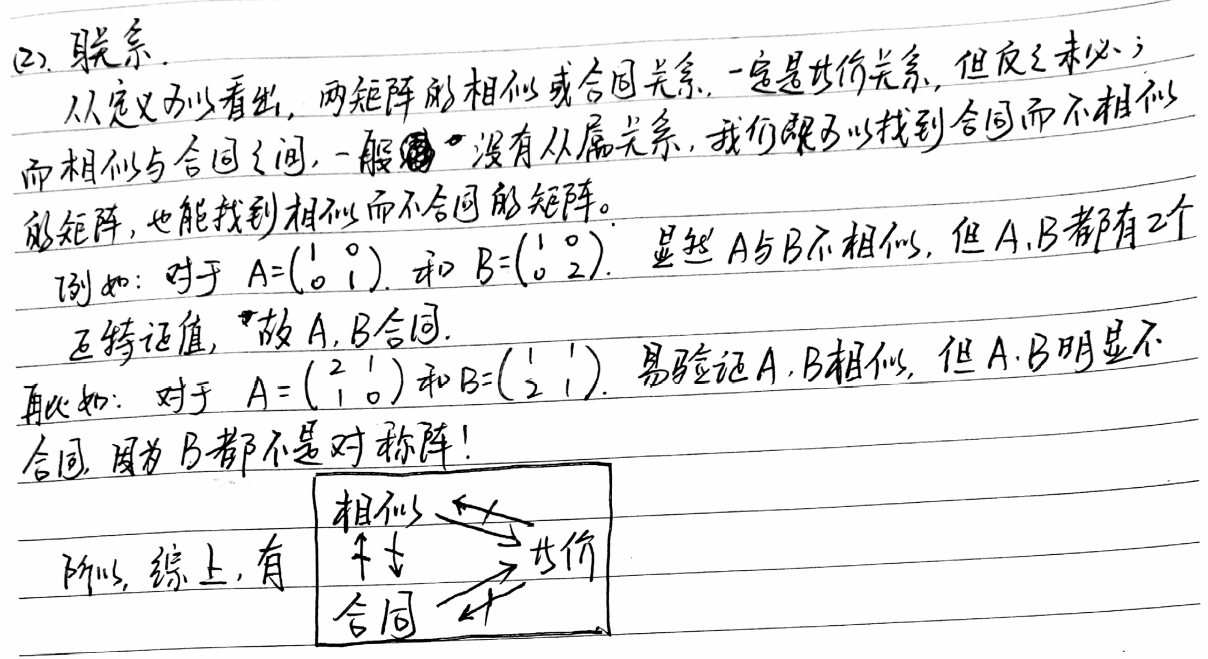 (2). 联系.
从定义可以看出, 两矩阵的相似或合同关系, 一定是等价关系, 但反之未必;
而相似与合同之间, 一般没有从属关系, 我们既可以找到合同而不相似
的矩阵, 也能找到相似而不合同的矩阵。
例如: 对于 A=(1 0 0 1). 和 B=(1 0 0 2). 显然 A与B不相似, 但A,B都有2个
正特证值, 故A,B合同.
再比如: 对于 A=(2 1 1 0) 和 B=(1 1 2 1). 易验证A,B相似, 但A,B明显不
合同, 因为B都不是对称阵!
所以, 综上, 有
相似
等价
合同